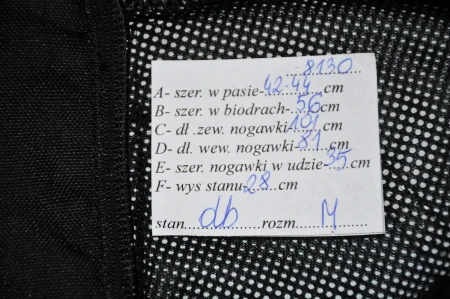 8130
A- szer. w pasie-42-44cm
B- szer. w biodrach-56cm
C- dł .zew. nogawki101cm
D- dł. wew. nogawki-81cm
E- szer. nogawki w udzie-35cm
F- wys stanu-28cm
stan db rozm M